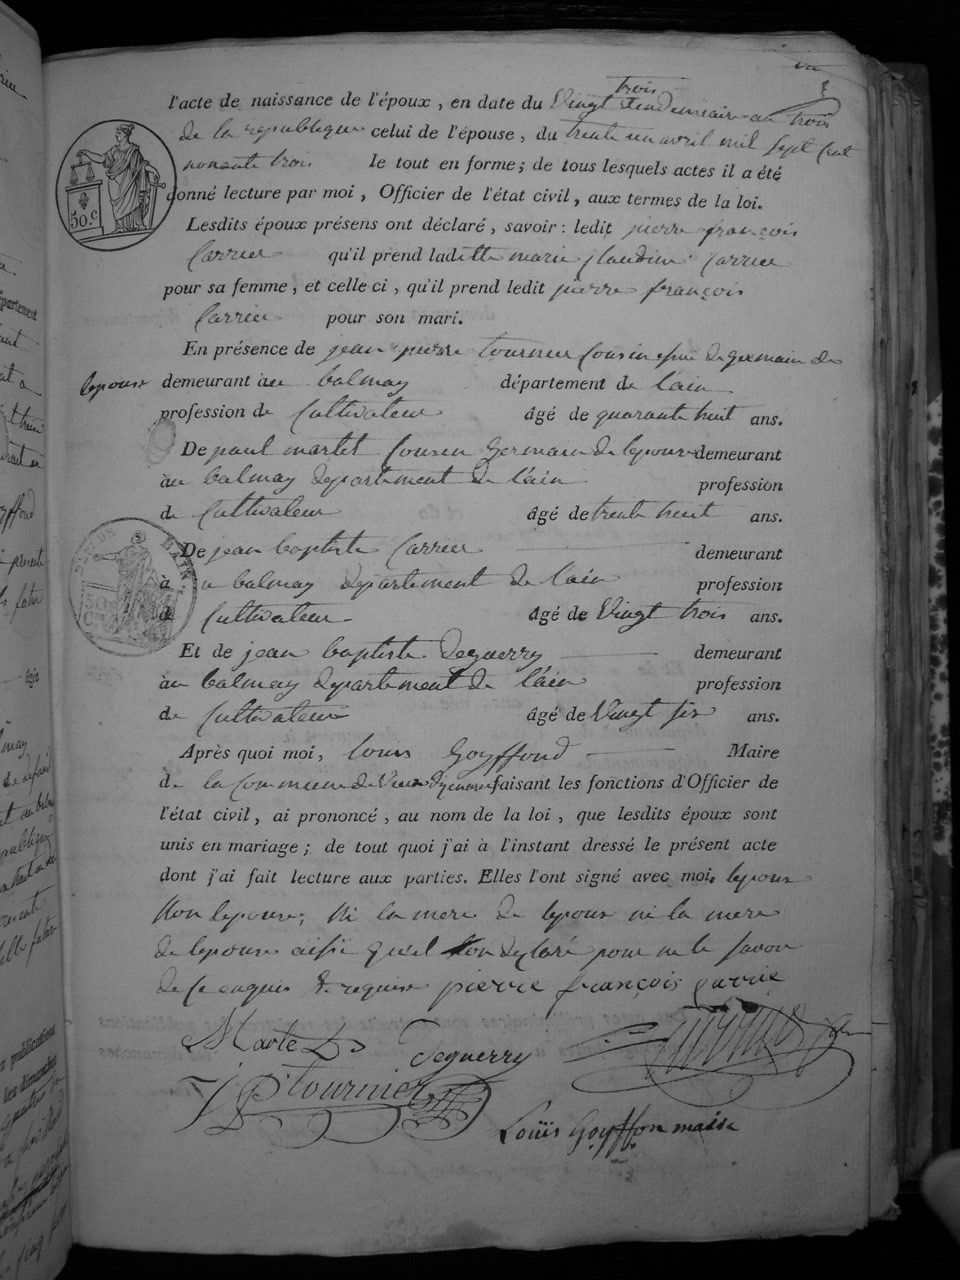 trois
l'acte de naissance de l'époux, en date du Vingt vendemiaire an trois
de la republique celui de l'épouse, du trente un avril mil sept cent
nonante trois le tout en forme; de tous lesquels actes il a été
donné lecture par moi, Officier de l'état civil, aux termes de la loi.
50.c
Lesdits époux présens ont déclaré, savoir: ledit pierre françois
Carrier qu'il prend ladite marie Claudine Carrier
pour sa femme, et celle ci, qu'il prend ledit pierre françois
Carrier pour son mari.
En présence de jean pierre tournier Cousin germain de
lepouse demeurant à au balmay département de lain
profession de Cultivateur âgé de quarante huit ans.
De paul martel Cousin Germain de lepouse demeurant
à au balmay département de l'ain profession
de Cultivateur âgé de trente huit ans.
De jean baptiste Carrier demeurant
à a balmay département de lain profession
de Cultivateur âgé de Vingt trois ans.
Et de jean baptiste Deguerry demeurant
à au balmay département de l'ain profession
de Cultivateur âgé de Vingt six ans.
Après quoi moi, louis Goyffond Maire
de la Commune de Vieux Dizenave faisant les fonctions d'Officier de
l'état civil, ai prononcé, au nom de la loi, que lesdits époux sont
unis en mariage; de tout quoi j'ai à l'instant dressé le présent acte
dont j'ai fait lecture aux parties. Elles l'ont signé avec moi. lepoux
Non lepouse, Ni la mere de lepoux ni la mere
de lepouse ainsi quel lon declaré pour ne le savoir
de ce enquis & requise pierre françois Carrie
Martel Deguerry
J P tournier
Louïs Goyffon maire